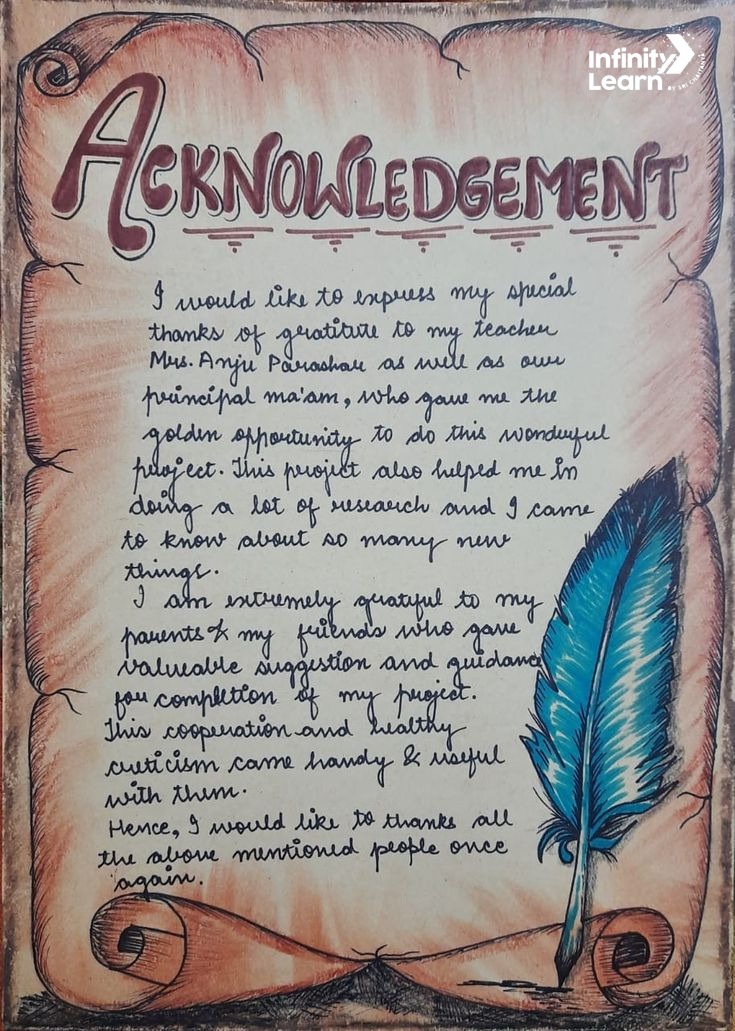 Infinity
Learn
BY SRI CHAITANYA
ACKNOWLEDGEMENT
I would like to express my special
thanks of gratitute to my teacher
Mrs. Anju Parashar as well as our
principal ma'am, who gave me the
golden opportunity to do this wonderful
project. This project also helped me in
doing a lot of research and I came
to know about so many new
things.
I am extremely grateful to my
parents & my friends who gave
valueable suggestion and guidance
for completion of my project.
This cooperation and healthy
creticism came handy & useful
with them.
Hence, I would like to thanks all
the above mentioned people once
again.